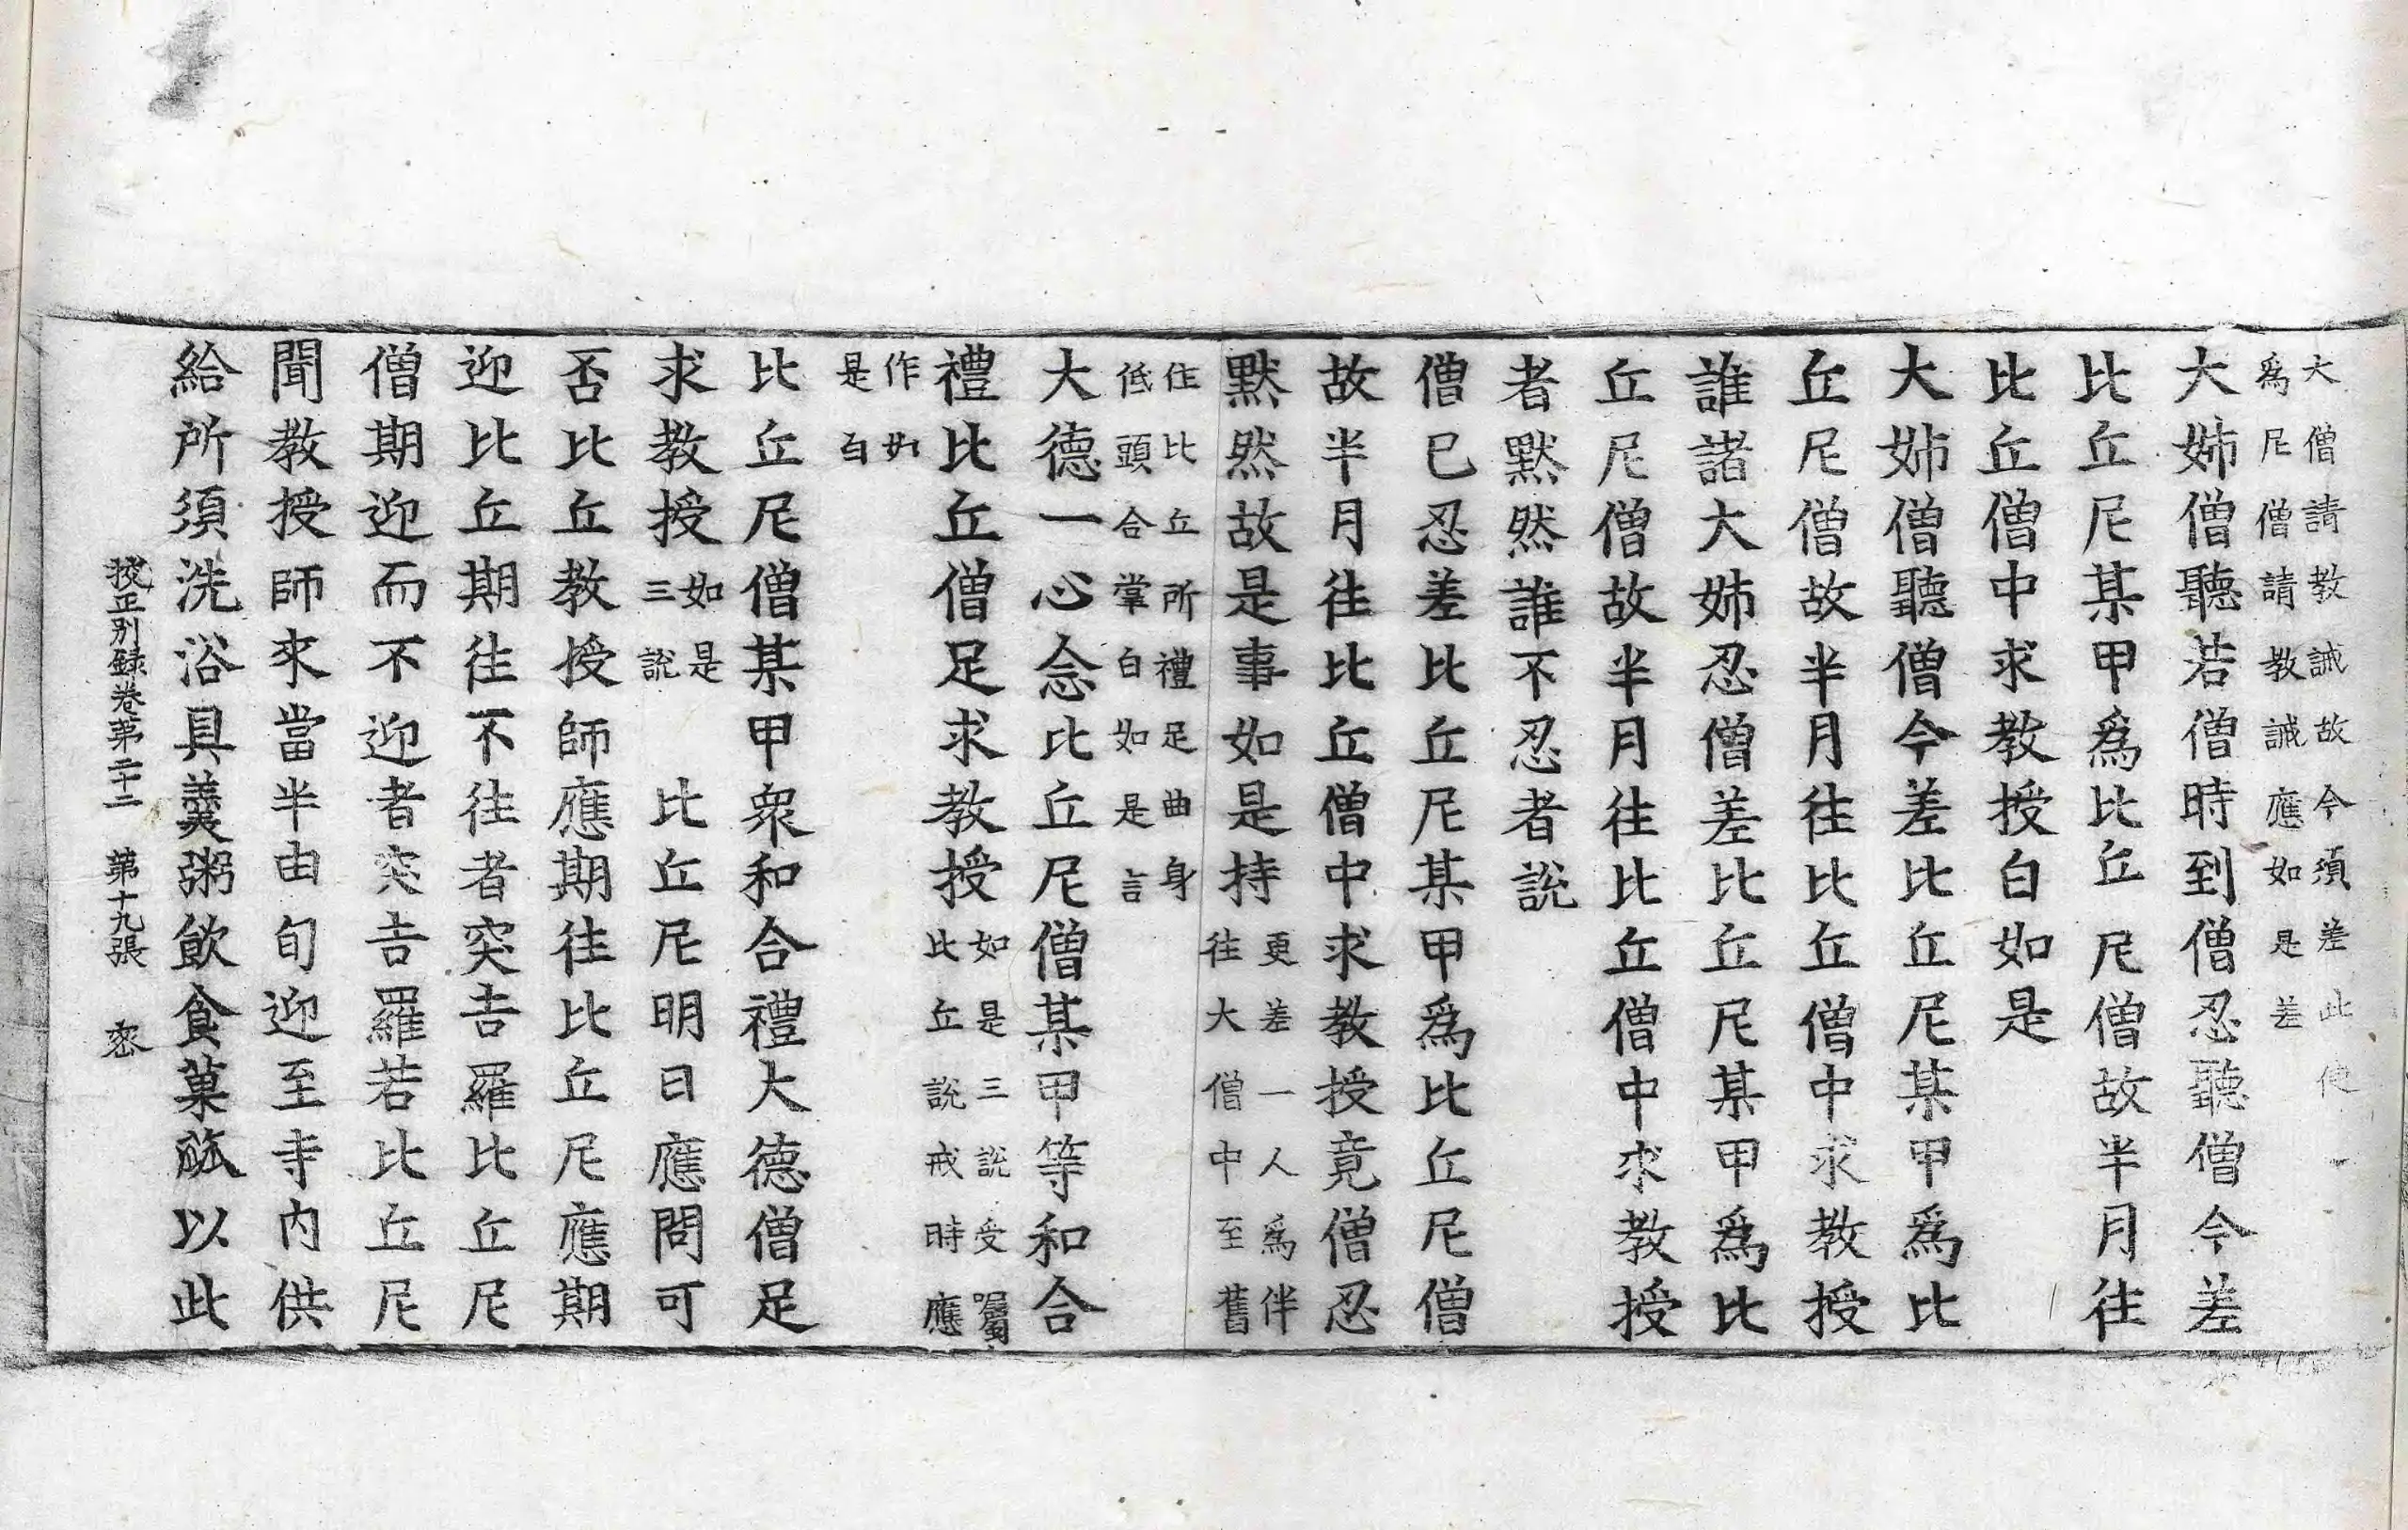 大僧請教誡故今須差此使一
爲尼僧請教誡應如是差
大姊僧聽若僧時到僧忍聽僧今差
比丘尼某甲爲比丘尼僧故半月往
比丘僧中求教授白如是
大姊僧聽僧今差比丘尼某甲爲比
丘尼僧故半月往比丘僧中求教授
誰諸大姊忍僧差比丘尼某甲爲比
丘尼僧故半月往比丘僧中求教授
者黙然誰不忍者說
僧已忍差比丘尼某甲爲比丘尼僧
故半月往比丘僧中求教授竟僧忍
黙然故是事如是持更差一人爲伴往大僧中至舊
住比丘所禮足曲身
低頭合掌白如是言
大德一心念比丘尼僧某甲等和合
禮比丘僧足求教授如是三說受囑比丘說戒時應
作如
是白
比丘尼僧某甲衆和合禮大德僧足
求教授如是三說 比丘尼明日應問可
否比丘教授師應期往比丘尼應期
迎比丘期往不往者突吉羅比丘尼
僧期迎而不迎者突吉羅若比丘尼
聞教授師來當半由旬迎至寺内供
給所須洗浴具羹粥飲食菓蓏以此
挍正别録卷第二十二 第十九張